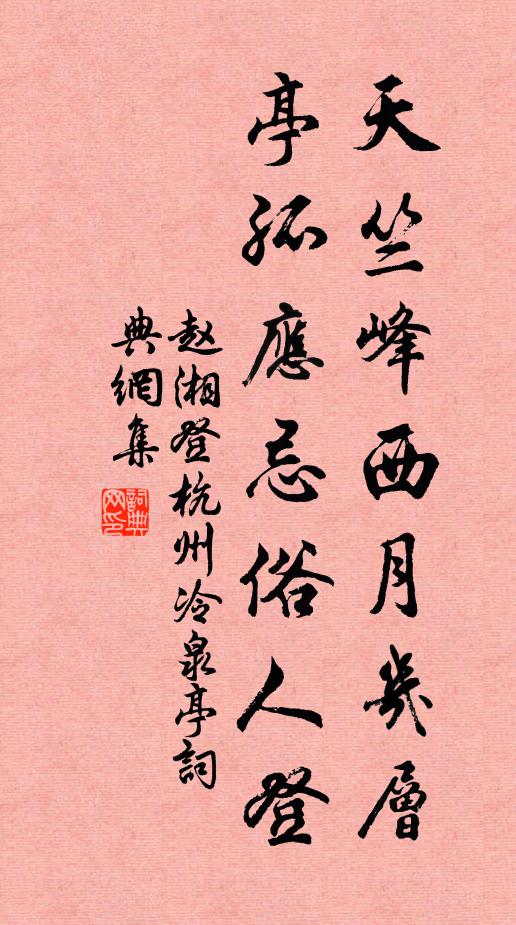 天竺峰西月幾層
亭孤應忌俗人登
赵湘登杭州冷泉亭詞
典網集
詞典网印